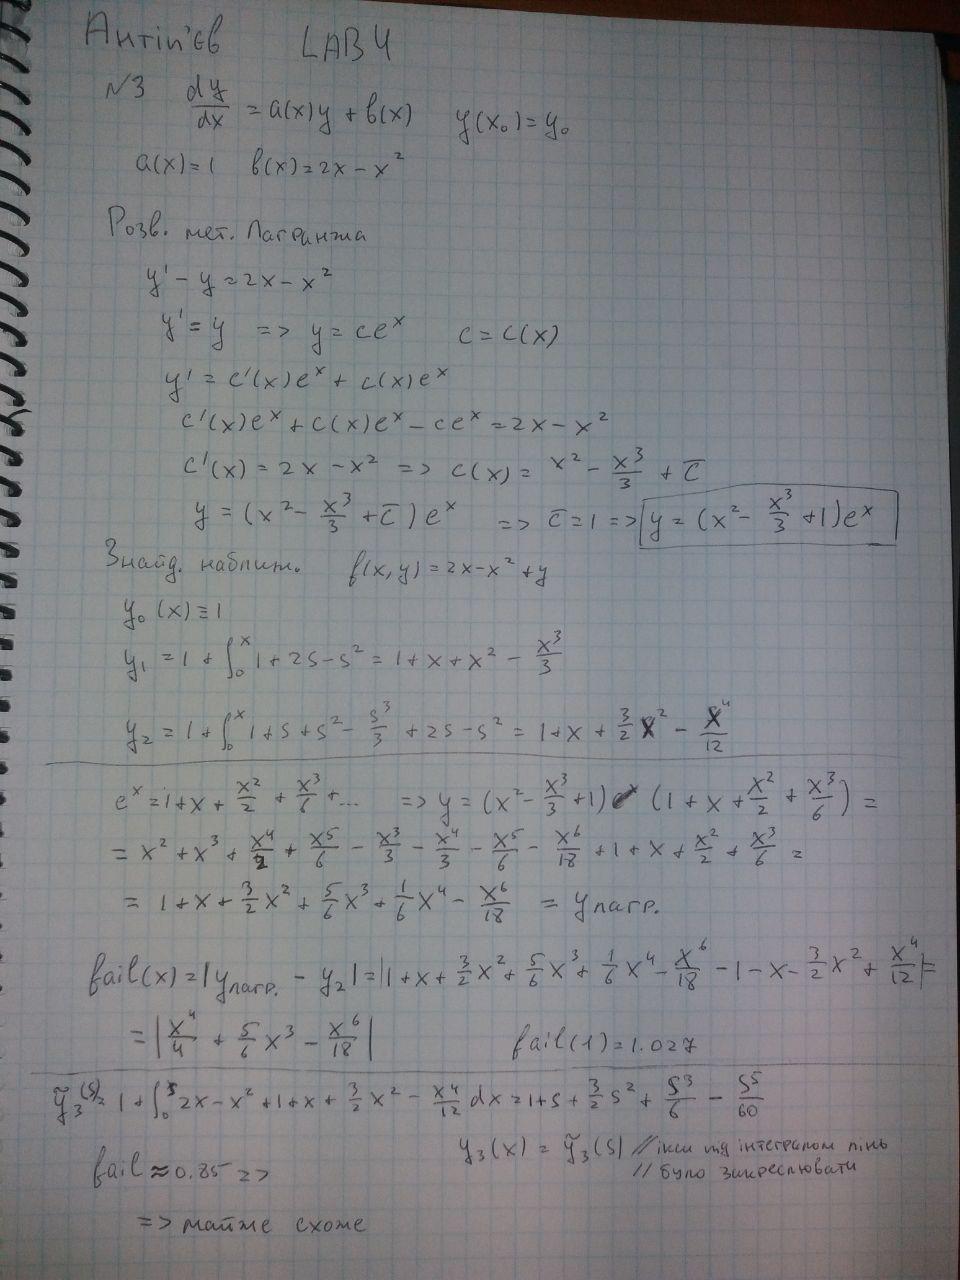 Антіп'єв LAB 4
№3 dy/dx = a(x)y + b(x) y(x₀) = y₀
a(x) = 1 b(x) = 2x - x²
Розв. мет. Лагранжа
y' - y = 2x - x²
y' = y => y = ce^x c = c(x)
y' = c'(x)e^x + c(x)e^x
c'(x)e^x + c(x)e^x - ce^x = 2x - x²
c'(x) = 2x - x² => c(x) = x² - x³/3 + c̄
y = (x² - x³/3 + c̄)e^x => c̄ = 1 => y = (x² - x³/3 + 1)e^x
Знайд. наближ. f(x,y) = 2x - x² + y
y₀(x) ≡ 1
y₁ = 1 + ∫₀^x 1 + 2s - s² = 1 + x + x² - x³/3
y₂ = 1 + ∫₀^x 1 + s + s² - s³/3 + 2s - s² = 1 + x + 3/2 x² - x⁴/12
e^x = 1 + x + x²/2 + x³/6 + ... => y = (x² - x³/3 + 1) (1 + x + x²/2 + x³/6) =
= x² + x³ + x⁴/2 + x⁵/6 - x³/3 - x⁴/3 - x⁵/6 - x⁶/18 + 1 + x + x²/2 + x³/6 =
= 1 + x + 3/2 x² + 5/6 x³ + 1/6 x⁴ - x⁶/18 = y лагр.
fail(x) = |y лагр. - y₂| = |1 + x + 3/2 x² + 5/6 x³ + 1/6 x⁴ - x⁶/18 - 1 - x - 3/2 x² + x⁴/12| =
= |x⁴/4 + 5/6 x³ - x⁶/18| fail(1) = 1.027
ỹ₃(s) = 1 + ∫₀^s 2x - x² + 1 + x + 3/2 x² - x⁴/12 dx = 1 + s + 3/2 s² + s³/6 - s⁵/60
y₃(x) = ỹ₃(s) // ікси під інтегралом лінь
// було закреслювати
fail ≈ 0.85 =>
=> майже схоже